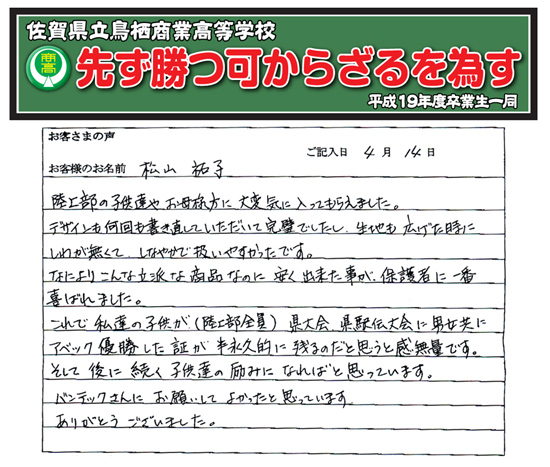 佐賀県立鳥栖商業高等学校
商高
先ず勝つ可からざるを為す
平成19年度卒業生一同
お客さまの声
ご記入日 4月 14日
お客様のお名前 松山 祐子
陸上部の子供達やお母様方に大変気に入ってもらえました。
デザインも何回も書き直していただいて完璧でしたし、生地も広げた時に
しわが無くて、しなやかで扱いやすかったです。
なによりこんな立派な商品なのに安く出来た事が、保護者に一番
喜ばれました。
これで私達の子供が(陸上部全員)県大会、県駅伝大会に男女共に
アベック優勝した証が半永久的に残るのだと思うと感無量です。
そして後に続く子供達の励みになればと思っています。
バンテックさんにお願いしてよかったと思っています。
ありがとうございました。